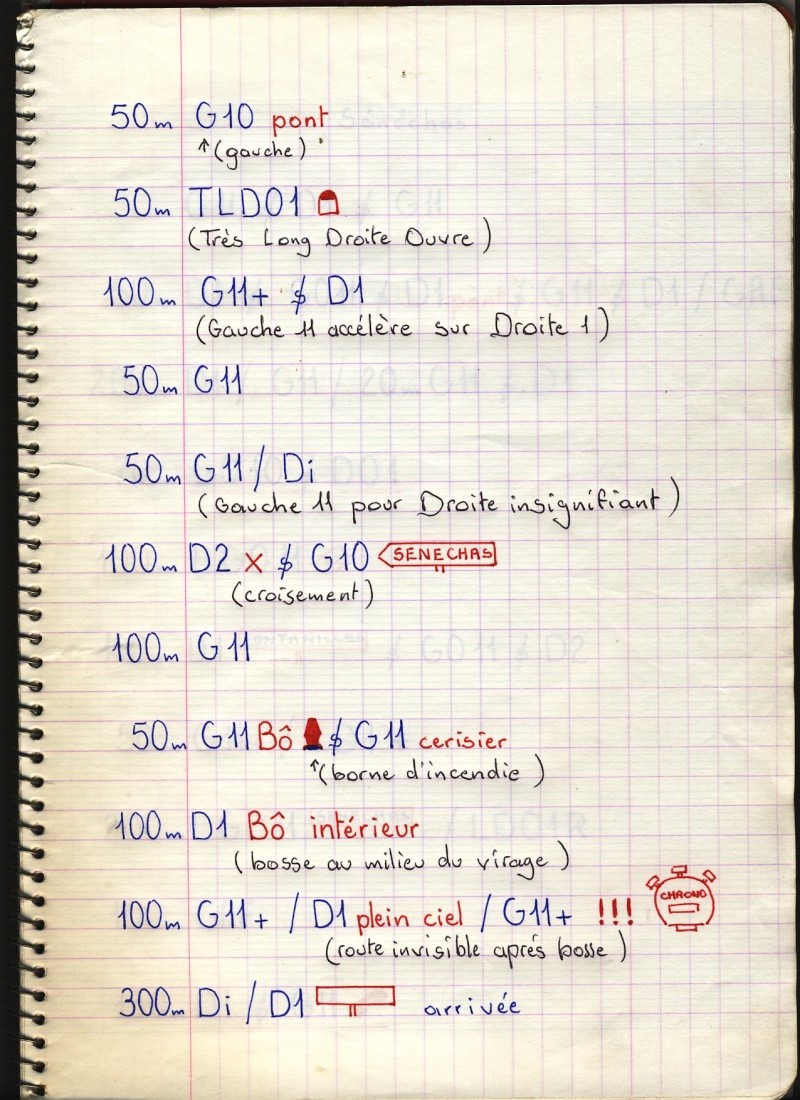 50m G10 pont
↑(gauche)
50m TLDO1
(Très Long Droite Ouvre)
100m G11+ $ D1
(Gauche 11 accélère sur Droite 1)
50m G11
50m G11 / Di
(Gauche 11 pour Droite insignifiant)
100m D2 x $ G10 SENECHAS
(croisement)
100m G11
50m G11 Bô $ G11 cerisier
↑(borne d'incendie)
100m D1 Bô intérieur
(bosse au milieu du virage)
100m G11+ / D1 plein ciel / G11+ !!! CHRONO
(route invisible aprés bosse)
300m Di / D1 arrivée